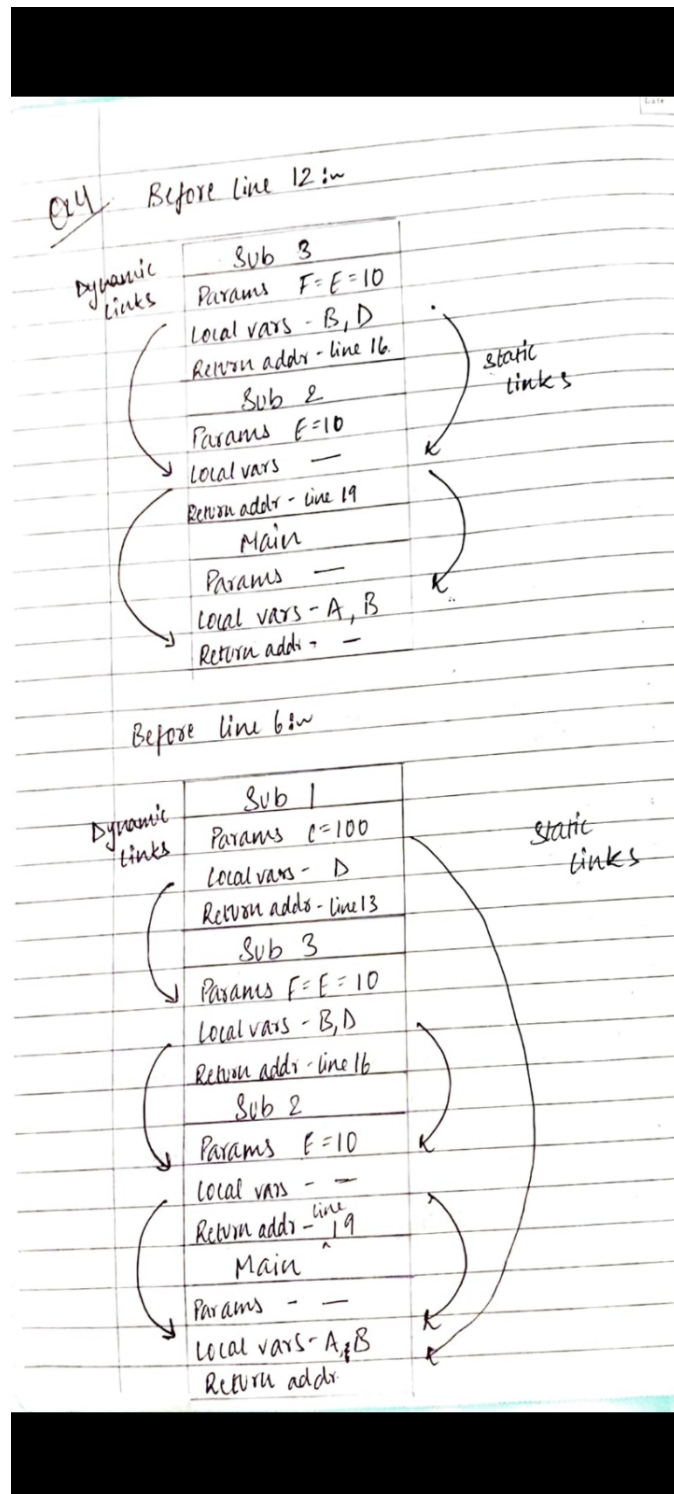 Date
Q4 Before line 12:~
Dynamic
Links
Sub 3
Params F=E=10
Local vars - B, D
Return addr - line 16.
static
links
Sub 2
Params E=10
Local vars —
Return addr - line 19
Main
Params —
Local vars - A, B
Return addr - —
Before line 6:~
Dynamic
Links
Sub 1
Params C=100
Local vars - D
Return addr - line 13
static
links
Sub 3
Params F=E=10
Local vars - B, D
Return addr - line 16
Sub 2
Params E=10
Local vars - —
Return addr - line 19
Main
Params - —
Local vars - A, B
Return addr.